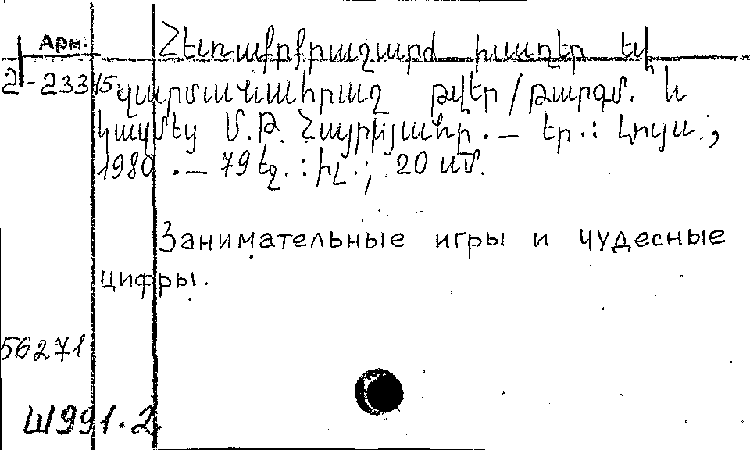 Арм.
2-23315
Հետաքրքրաշարժ խաղեր եվ
զարմանահրաշ թվեր / թարգմ. և
կազմեց Մ.Թ. Հայրիյանը. — Եր.: Լույս,
1980. — 79 էջ. : իլ.; 20 սմ.
Занимательные игры и чудесные
цифры.
56271
Ш991.2